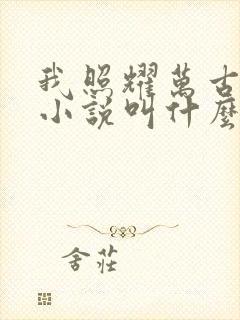 我照耀萬古
小說叫什麼
舍莊